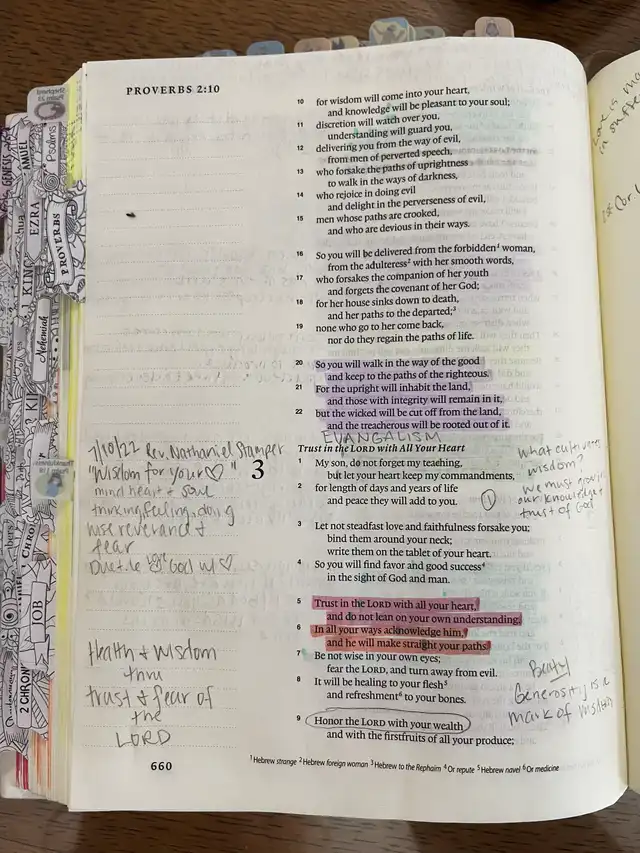 PROVERBS 2:10
10 for wisdom will come into your heart,
and knowledge will be pleasant to your soul;
11 discretion will watch over you,
understanding will guard you,
12 delivering you from the way of evil,
from men of perverted speech,
13 who forsake the paths of uprightness
to walk in the ways of darkness,
14 who rejoice in doing evil
and delight in the perverseness of evil,
15 men whose paths are crooked,
and who are devious in their ways.
16 So you will be delivered from the forbidden¹ woman,
from the adulteress² with her smooth words,
17 who forsakes the companion of her youth
and forgets the covenant of her God;
18 for her house sinks down to death,
and her paths to the departed;³
19 none who go to her come back,
nor do they regain the paths of life.
20 So you will walk in the way of the good
and keep to the paths of the righteous.
21 For the upright will inhabit the land,
and those with integrity will remain in it,
22 but the wicked will be cut off from the land,
and the treacherous will be rooted out of it.
EVANGALISM
Trust in the LORD with All Your Heart
3
1 My son, do not forget my teaching,
but let your heart keep my commandments,
2 for length of days and years of life
and peace they will add to you.
1
3 Let not steadfast love and faithfulness forsake you;
bind them around your neck;
write them on the tablet of your heart.
4 So you will find favor and good success⁴
in the sight of God and man.
5 Trust in the LORD with all your heart,
and do not lean on your own understanding.
6 In all your ways acknowledge him,
and he will make straight your paths.
7 Be not wise in your own eyes;
fear the LORD, and turn away from evil.
8 It will be healing to your flesh⁵
and refreshment⁶ to your bones.
9 Honor the LORD with your wealth
and with the firstfruits of all your produce;
7/10/22 Rev. Nathaniel Stamper
"Wisdom for your ♡"
mind heart + soul
thinking, feeling, doing
wise reverance +
fear
love
God w/ ♡
Health + Wisdom
thru
trust + fear of
the
LORD
what cultivates
wisdom?
we must grow in
our knowledge +
trust of God
Generosity is a
mark of wisdom
660
¹ Hebrew strange ² Hebrew foreign woman ³ Hebrew to the Rephaim ⁴ Or repute ⁵ Hebrew navel ⁶ Or medicine
Psalms
PROVERBS
GENESIS
EZRA
Nehemiah
JOB
2 CHRON